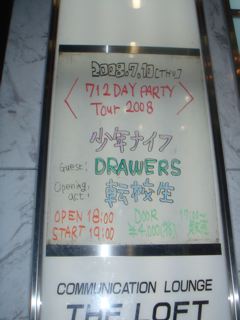 2008.7.10 [THU]
< 712 DAY PARTY >
Tour 2008
少年ナイフ
Guest: DRAWERS
Opening act: 転校生
OPEN 18:00
START 19:00
DOOR
¥4,000
COMMUNICATION LOUNGE
THE LOFT